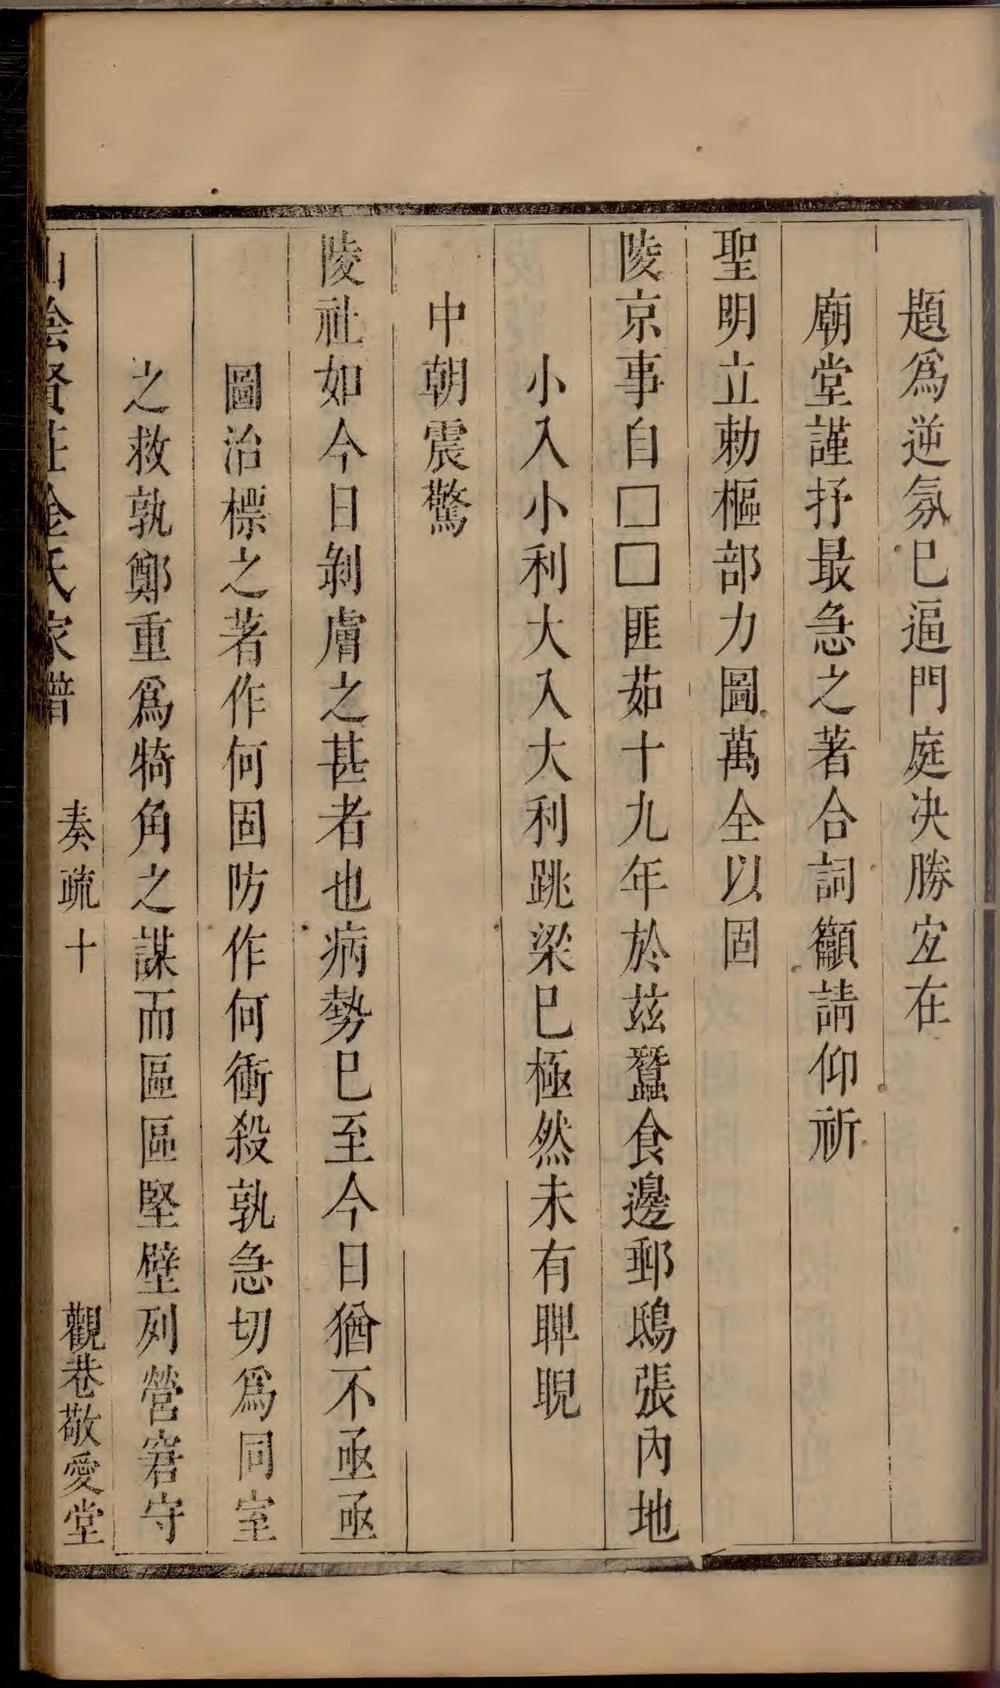 題爲逆氛已逼門庭決勝宜在
廟堂謹抒最急之著合詞籲請仰祈
聖明立勅樞部力圖萬全以固
陵京事自□□匪茹十九年於茲蠶食邊郵鴟張內地
小入小利大入大利跳梁已極然未有睥睨
中朝震驚
陵社如今日剝膚之甚者也病勢已至今日猶不亟亟
圖治標之著作何固防作何衝殺孰急切爲同室
之救孰鄭重爲犄角之謀而區區堅壁列營窘守
山陰賢莊金氏家譜
奏疏
十
觀巷敬愛堂